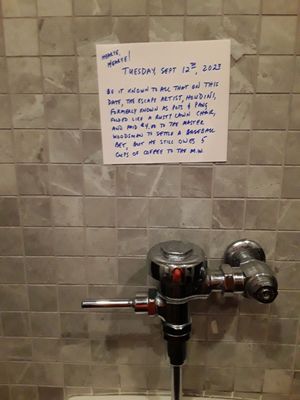 HEARYE,
HEARYE!
TUESDAY, SEPT 12TH, 2023
BE IT KNOWN TO ALL THAT ON THIS
DATE, THE ESCAPE ARTIST, HOUDINI,
FORMERLY KNOWN AS POTS & PANS,
FOLDED LIKE A RUSTY LAWN CHAIR,
AND PAID $4.00 TO THE MASTER
WOODSMAN TO SETTLE A BASEBALL
BET, BUT HE STILL OWES 5
CUPS OF COFFEE TO THE M.W.